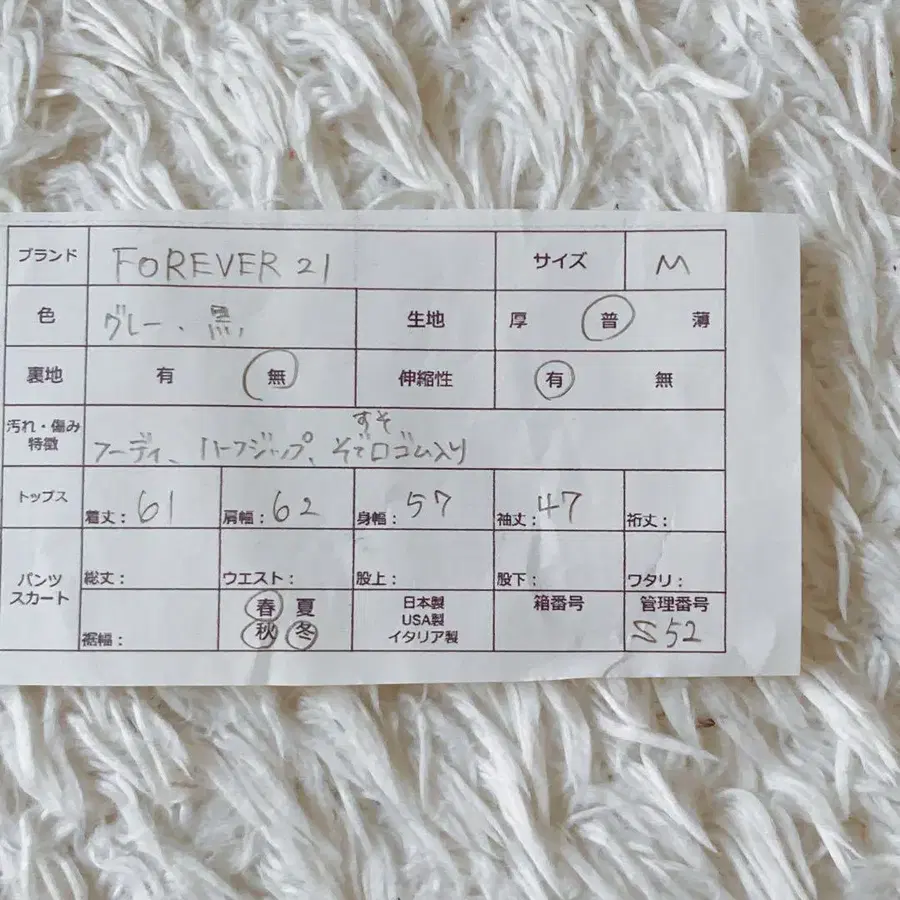 ブランド FOREVER 21 サイズ M
色 グレー、黒、 生地 厚 普 薄
裏地 有 無 伸縮性 有 無
汚れ・傷み
特徴
すそ
フーディ、ハーフジップ、そで口ゴム入り
トップス 着丈： 61 肩幅： 62 身幅： 57 袖丈： 47 裄丈：
パンツ
スカート
総丈： ウエスト： 股上： 股下： ワタリ：
裾幅：
春 夏
秋 冬
日本製
USA製
イタリア製
箱番号
管理番号
S52